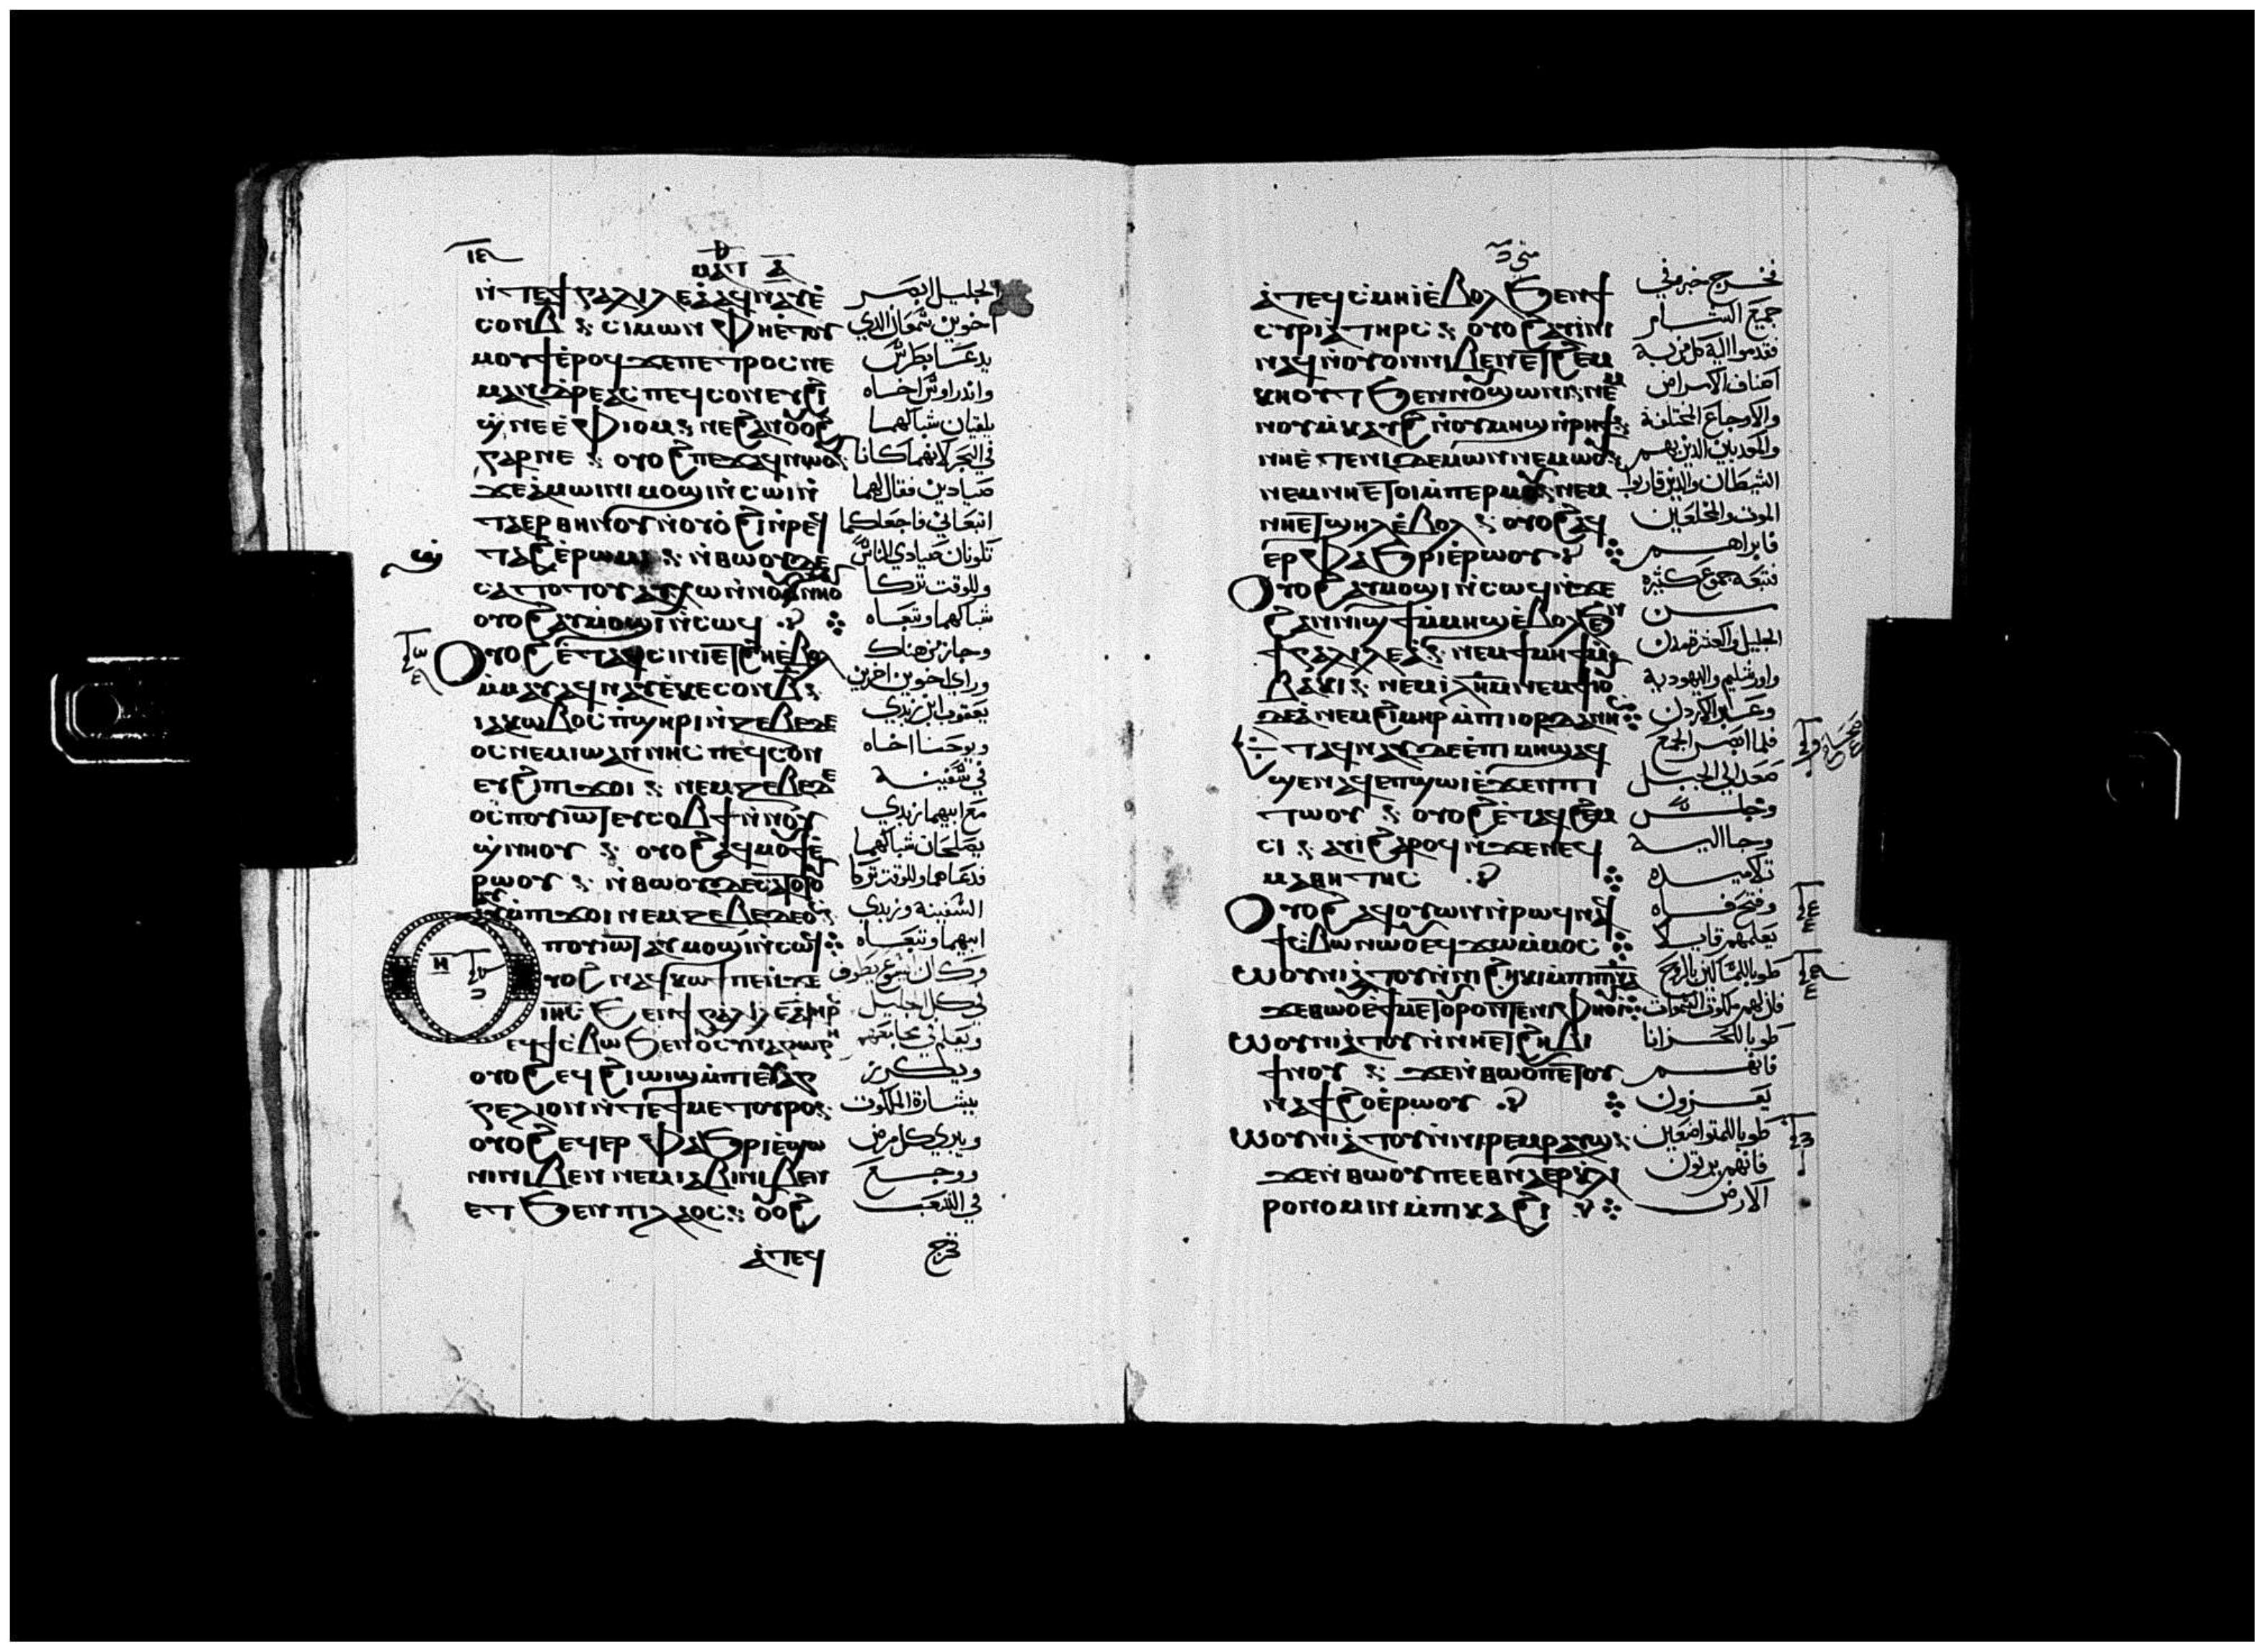 ⲙⲁⲧ
ⲛ̀ⲧⲉϯⲅⲁⲗⲓⲗⲉⲁ̀ⲁϥⲛⲁⲩⲉ̀
ⲥⲟⲛⲃ̅ ⲥⲓⲙⲱⲛ ⲫⲏⲉ̀ⲧⲟⲩ
ⲙⲟⲩϯⲉ̀ⲣⲟϥϫⲉⲡⲉⲧⲣⲟⲥⲛⲉ
ⲙⲁⲛⲇⲣⲉⲁⲥⲡⲉϥⲥⲟⲛⲉⲩϩⲓ
ϣ̀ⲛⲉⲉ̀ⲫⲓⲟⲙ ⲛⲉϩⲁⲛⲟⲩⲟϩⲓ
ⲅⲁⲣⲛⲉ ⲟⲩⲟϩⲡⲉϫⲁϥⲛⲱⲟⲩ
ϫⲉⲁ̀ⲙⲱⲓⲛⲓⲙⲟϣⲓⲛ̀ⲥⲱⲓⲛ̀
ⲧⲁⲉⲣⲑⲏⲛⲟⲩⲛ̀ⲟⲩⲟ̀ϩⲓⲛ̀ⲣⲉϥ
ⲧⲁϩⲉ̀ⲣⲱⲙⲓ ⲛ̀ⲑⲱⲟⲩⲇⲉ
ⲥⲁⲧⲟⲧⲟⲩⲁⲩⲭⲱⲛ̀ⲛⲟⲩϣⲛⲏⲟⲩ
ⲟⲩⲟϩⲁⲩⲙⲟϣⲓⲛ̀ⲥⲱϥ
ⲟⲩⲟϩⲉ̀ⲧⲁϥⲥⲓⲛⲓⲉ̀ⲧϩⲏⲉ̀ⲃⲟⲗ
ⲙ̀ⲙⲁⲩⲁϥⲛⲁⲩⲉ̀ⲕⲉⲥⲟⲛⲃ̅
ⲓⲁⲕⲱⲃⲟⲥⲡ̀ϣⲏⲣⲓⲛ̀ⲍⲉⲃⲉⲇⲉ
ⲟⲥⲛⲉⲙⲓⲱⲁⲛⲛⲏⲥⲡⲉϥⲥⲟⲛ
ⲉⲩϩⲓⲡϫⲟⲓ ⲛⲉⲙⲍⲉⲃⲉⲇⲉ
ⲟⲥⲡⲟⲩⲓⲱⲧⲉⲩⲥⲟⲃϯⲛ̀ⲛⲟⲩ
ϣ̀ⲛⲏⲟⲩ ⲟⲩⲟϩⲁϥⲙⲟⲩϯⲉ̀
ⲣⲱⲟⲩ ⲛ̀ⲑⲱⲟⲩⲇⲉⲥⲁⲧⲟⲧⲟⲩ
ⲙ̀ⲡϫⲟⲓⲛⲉⲙⲍⲉⲃⲉⲇⲉⲟⲥ
ⲡⲟⲩⲓⲱⲧⲁⲩⲙⲟϣⲓⲛ̀ⲥⲱϥ
ⲟⲩⲟϩ ⲛⲁϥⲕⲱϯⲡⲉⲛ̀ϫⲉ
ⲓⲏ̅ⲥ ϧⲉⲛϯⲅⲁⲗⲓⲗⲉⲁ̀ⲧⲏⲣⲥ
ⲉϥϯⲥ̀ⲃⲱϧⲉⲛⲛⲟⲩⲥⲩⲛⲁⲅⲱⲅⲏ
ⲟⲩⲟϩⲉϥϩⲓⲱⲓϣⲙ̀ⲡⲓⲉⲩⲁⲅ
ⲅⲉⲗⲓⲟⲛⲛ̀ⲧⲉϯⲙⲉⲧⲟⲩⲣⲟ
ⲟⲩⲟϩⲉϥⲉⲣ ⲫⲁϧⲣⲓⲉ̀ϣⲱ
ⲛⲓⲛⲓⲃⲉⲛ ⲛⲉⲙⲓⲁⲃⲓⲛⲓⲃⲉⲛ
ⲉⲧϧⲉⲛⲡⲓⲗⲁⲟⲥ ⲟⲩⲟϩ
ⲁ̀ⲧⲉϥ
الجليل ابصر
اخوين شمعان الدي
يدعا بطرس
واندراوس اخاه
يلقيان شباكهما
في البحر لانهما كانا
صيادين فقال لهما
اتبعاني فاجعلكما
تكونان صيادي الناس
وللوقت تركا
شباكهما وتبعاه
وجاز من هناك
وراي اخوين اخرين
يعقوب ابن زبدي
ويوحنا اخاه
في سفينه
مع ابيهما زبدي
يصلحان شباكهما
فدعاهما وللوقت تركا
السفينه وزبدي
ابيهما وتبعاه
وكان يسوع يطوف
في كل الجليل
ويعلم في مجامعهم
ويكرز
ببشارة الملكوت
ويبري كل مرض
ووجع
في الشعب
فخرج
متي
ⲁ̀ⲧⲉϥⲥⲙⲏⲓⲉ̀ⲃⲟⲗϧⲉⲛϯ
ⲥⲩⲣⲓⲁ ⲧⲏⲣⲥ ⲟⲩⲟϩⲁⲩⲓ̀ⲛⲓ
ⲛⲁϥⲛ̀ⲟⲩⲟⲛⲛⲓⲃⲉⲛⲉⲧϩⲉⲙ
ⲕⲏⲟⲩⲧϧⲉⲛⲛⲟⲩϣⲱⲛⲓⲛⲉⲙ
ⲛⲟⲩⲙ̀ⲕⲁⲩϩⲛ̀ⲟⲩⲙⲏϣⲛ̀ⲣⲏϯ
ⲛⲏⲉ̀ⲧⲉⲛⲓⲇⲉⲙⲱⲛⲛⲉⲙⲱⲟⲩ
ⲛⲉⲙⲛⲏⲉⲧⲟⲓⲙ̀ⲡⲉⲣⲙⲟⲩ ⲛⲉⲙ
ⲛⲏⲉⲧϣⲏⲗⲉ̀ⲃⲟⲗ ⲟⲩⲟϩⲁϥ
ⲉⲣⲫⲁϧⲣⲓⲉ̀ⲣⲱⲟⲩ
ⲟⲩⲟϩⲁⲩⲙⲟϣⲓⲛ̀ⲥⲱϥⲛ̀ϫⲉ
ϩⲁⲛⲛⲓϣϯⲙ̀ⲙⲏϣⲉ̀ⲃⲟⲗϧⲉⲛ
ϯⲅⲁⲗⲓⲗⲉⲁ̀ ⲛⲉⲙϯⲙⲏϯⲙ̀
ⲃⲁⲕⲓ ⲛⲉⲙⲓⲗⲏ̅ⲙⲛⲉⲙϯⲓⲟⲩ
ⲇⲉⲁ̀ⲛⲉⲙϩⲓⲙⲏⲣⲙ̀ⲡⲓⲟⲣⲇⲁⲛⲏⲥ
ⲉ̀ⲧⲁϥⲛⲁⲩⲇⲉⲉ̀ⲡⲓⲙⲏϣⲁϥ
ϣⲉⲛⲁϥⲉⲡϣⲱⲓⲉ̀ϫⲉⲛⲡⲓ
ⲧⲱⲟⲩ ⲟⲩⲟϩⲉ̀ⲧⲁϥϩⲉⲙ
ⲥⲓ ⲁⲩⲓ̀ϩⲁⲣⲟϥⲛ̀ϫⲉⲛⲉϥ
ⲙⲁⲑⲏⲧⲏⲥ
ⲟⲩⲟϩⲁϥⲟⲩⲱⲛⲛ̀ⲣⲱϥⲛⲁϥ
ϯⲥ̀ⲃⲱⲛⲱⲟⲩⲉϥϫⲱⲙ̀ⲙⲟⲥ
ⲱⲟⲩⲛⲓⲁⲧⲟⲩⲛ̀ⲛⲓϩⲏⲕⲓⲙ̀ⲡⲓⲡ̅ⲛ̅ⲁ̅
ϫⲉⲑⲱⲟⲩⲧⲉϯⲙⲉⲧⲟⲩⲣⲟⲛ̀ⲧⲉⲛⲓⲫⲏⲟⲩⲓ̀
ⲱⲟⲩⲛⲓⲁⲧⲟⲩⲛ̀ⲛⲏⲉⲧⲉⲣϩⲏⲃⲓ
ϯⲛⲟⲩ ϫⲉⲛ̀ⲑⲱⲟⲩⲡⲉⲧⲟⲩ
ⲛⲁϯϩⲟⲉ̀ⲣⲱⲟⲩ
ⲱⲟⲩⲛⲓⲁⲧⲟⲩⲛ̀ⲛⲓⲣⲉⲙⲣⲁⲩϣ
ϫⲉⲛ̀ⲑⲱⲟⲩⲡⲉⲉⲑⲛⲁⲉⲣⲕ̀ⲗⲏ
ⲣⲟⲛⲟⲙⲓⲛⲙ̀ⲡⲕⲁϩⲓ
فخرج خبره في
جميع الشام
فقدموا اليه كل من به
اصناف الامراض
والاوجاع المختلفة
والمعدبين الدين بهم
الشيطان والدين قاربوا
الموت والمخلعين
فابراهم
فتبعه جموع كثيره
من
الجليل والعشرة مدن
واورشليم واليهودية
وعبر الاردن
فلما ابصر الجمع
صعد الي الجبل
وجلس
وجا اليه
تلاميده
وفتح فاه
يعلمهم قايلا
طوبا للمساكين بالروح
فان لهم ملكوت السموات
طوبا للحزانا
فانهم
يعزون
طوبا للمتواضعين
فانهم يرتون
الارض